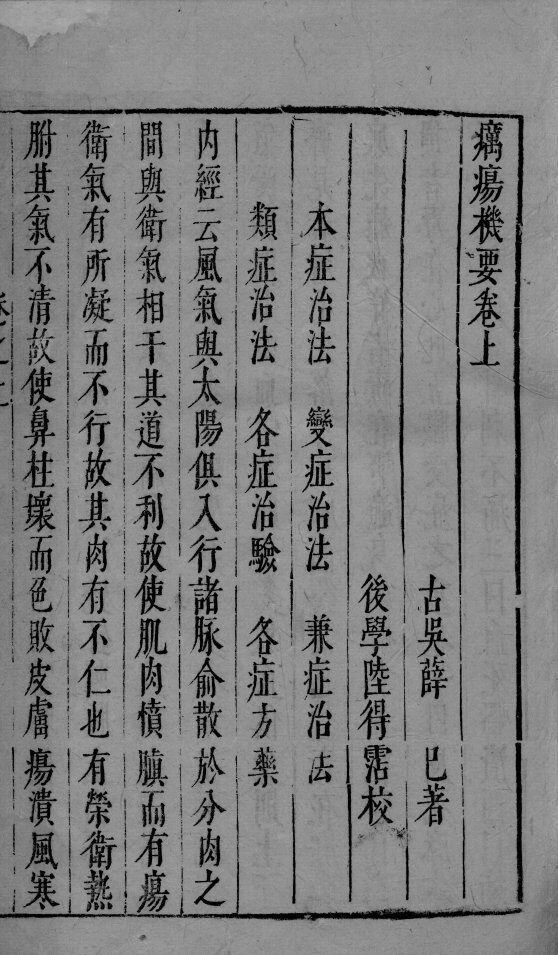 癘瘍機要卷上
古吳薛 已著
後學陸得霑校
本症治法 變症治法 兼症治法
類症治法 各症治驗 各症方藥
內經云風氣與太陽俱入行諸脉俞散於分肉之
間與衛氣相干其道不利故使肌肉憤䐜而有瘍
衛氣有所凝而不行故其肉有不仁也有榮衛熱
胕其氣不清故使鼻柱壞而色敗皮膚瘍潰風寒